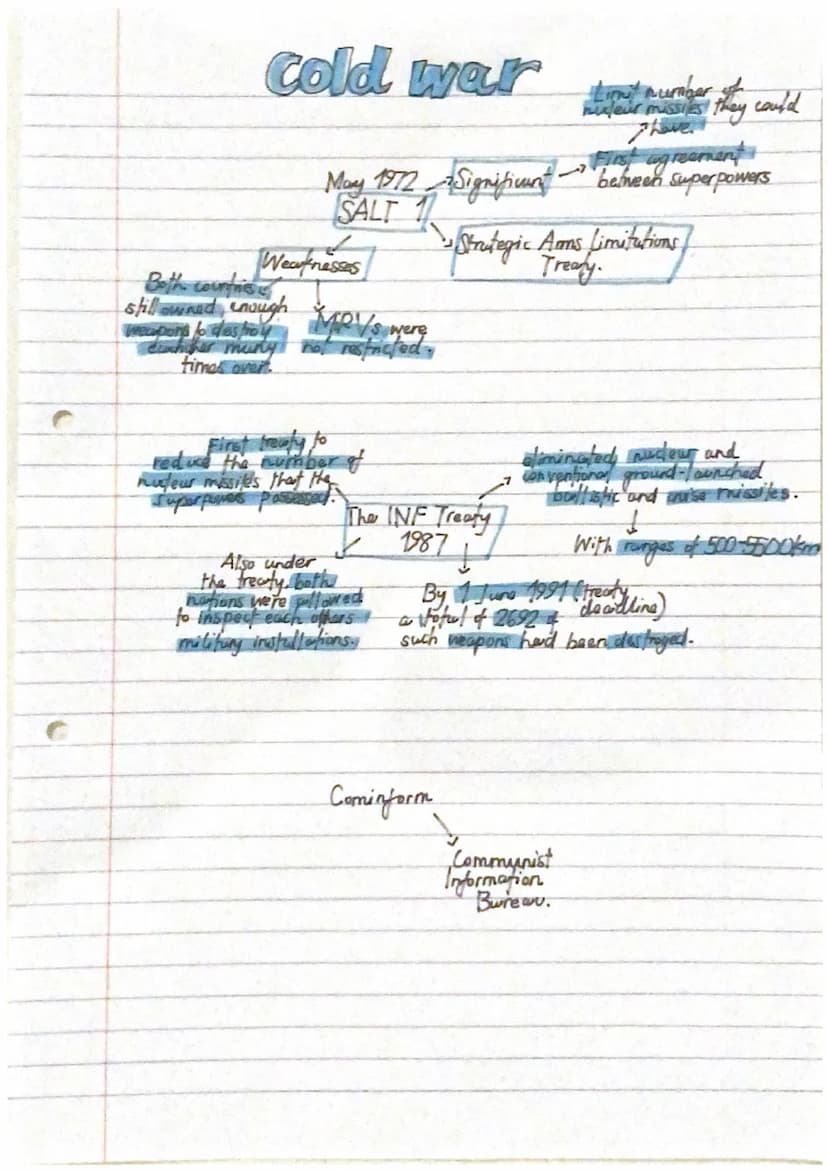 Cold war
Limit number of
nuclear missiles they could
have.
May 1972
Significant
First agreement
between superpowers
SALT 1
Strategic Arms Limitations
Treaty.
Weaknesses
Both countries
still owned enough
weapons to destroy
eachother many
times over.
MRVs were
not restricted.
First treaty to
reduce the number of
nuclear missiles that the
superpowers possessed.
eliminated nuclear and
conventional ground-launched
ballistic and cruise missiles.
The INF Treaty
1987
With ranges of 500-5500km
Also under
the treaty, both
nations were allowed
to inspect each others
military installations.
By 1 June 1991 (treaty
deadline)
a total of 2692 of
such weapons had been destroyed.
Cominform
Communist
Information
Bureau.